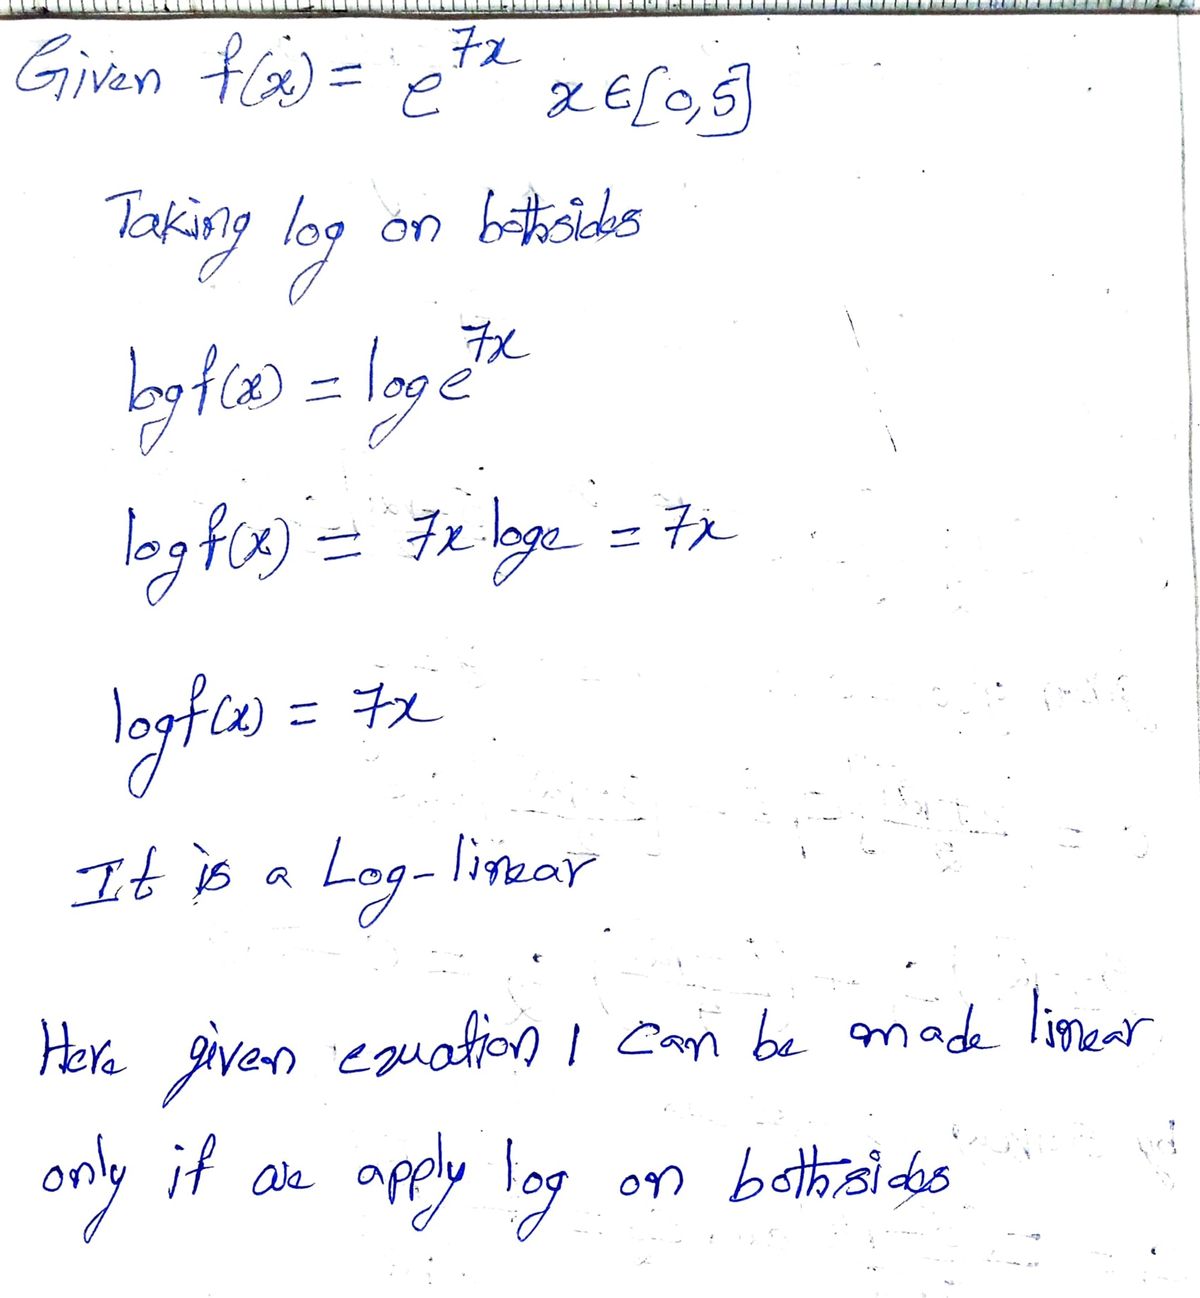 Given f(x) = e^7x x ∈ [0,5]
Taking log on bothsides
log f(x) = log e^7x
log f(x) = 7x loge = 7x
log f(x) = 7x
It is a Log-linear
Here given equation 1 can be made linear
only if we apply log on bothsides